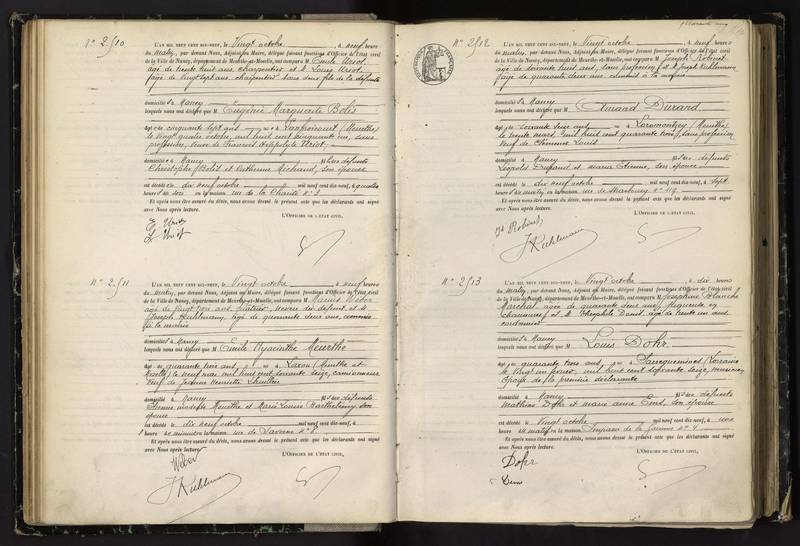 N° 2510
L'AN MIL NEUF CENT DIX-NEUF, le Vingt octobre, à neuf heures
du matin, par devant Nous, Adjoint au Maire, délégué faisant fonctions d'Officier de l'état civil
de la Ville de Nancy, département de Meurthe-et-Moselle, ont comparu M Emile Uriot
âgé de trente huit ans, charpentier et M. Louis Uriot
âgé de vingt sept ans charpentier tous deux fils de la défunte
domicilié à Nancy
lesquels nous ont déclaré que M Eugénie Marguerite Bolis
âgé de cinquante sept ans né à
le vingt quatre octobre, mil huit cent soixante un, sans
profession, veuve de François Hippolyte Uriot,
domicilié à Nancy fille des défunts
Christophe Bolis et Catherine Michaud, son épouse
est décédé le dix neuf octobre mil neuf cent dix-neuf, à quatre
heures du soir en la maison, rue de la Charité n° 3
Et après nous être assuré du décès, nous avons dressé le présent acte que les déclarants ont signé
avec Nous après lecture.
L'OFFICIER DE L'ÉTAT CIVIL,
E. Uriot
L. Uriot
N° 2511
L'AN MIL NEUF CENT DIX-NEUF, le Vingt octobre à neuf heures
du matin, par devant Nous, Adjoint au Maire, délégué faisant fonctions d'Officier de l'état civil
de la Ville de Nancy, département de Meurthe-et-Moselle, ont comparu M Marius Weber
âgé de vingt trois ans, neveu du défunt et M
Joseph Kuhlmann, âgé de quarante deux ans, commis
à la mairie
domicilié à Nancy
lesquels nous ont déclaré que M Emile Hyacinthe Meurthe
âgé de quarante trois ans, né à Laxou (Meurthe et
Moselle) le neuf mai mil huit cent soixante seize, camionneur
veuf de Jeanne Henriette
domicilié à Nancy fils des défunts
Etienne Meurthe et Marie Louise Barthélemy, son
épouse
est décédé le dix neuf octobre mil neuf cent dix-neuf, à
heures minutes en la maison, rue de Saverne n° 8
Et après nous être assuré du décès, nous avons dressé le présent acte que les déclarants ont signé
avec Nous après lecture.
L'OFFICIER DE L'ÉTAT CIVIL,
Weber
J Kuhlmann
N° 2512
L'AN MIL NEUF CENT DIX-NEUF, le Vingt octobre, à neuf heures
du matin, par devant Nous, Adjoint au Maire, délégué faisant fonctions d'Officier de l'état civil
de la Ville de Nancy, département de Meurthe-et-Moselle, ont comparu M Joseph Robinet
âgé de soixante huit ans, sans profession et M Joseph Kuhlmann
âgé de quarante deux ans commis à la mairie
domicilié à Nancy
lesquels nous ont déclaré que M Amand Durand
âgé de soixante seize ans né à Loromontzey (Meurthe)
le trente mars, mil huit cent quarante trois, sans profession
veuf de Clémence Louis
domicilié à Nancy fils des défunts
Léopold Durand et Maria Etienne, son épouse
est décédé le dix neuf octobre mil neuf cent dix-neuf, à sept
heures du matin en la maison, rue de Strasbourg n° 119
Et après nous être assuré du décès, nous avons dressé le présent acte que les déclarants ont signé
avec Nous après lecture.
L'OFFICIER DE L'ÉTAT CIVIL,
Jh Robinet
J Kuhlmann
N° 2513
L'AN MIL NEUF CENT DIX-NEUF, le Vingt octobre, à dix heures
du matin, par devant Nous, Adjoint au Maire, délégué faisant fonctions d'Officier de l'état civil
de la Ville de Nancy, département de Meurthe-et-Moselle, ont comparu M Joséphine Blanche
Maréchal âgée de quarante deux ans, piqueuse en
chaussures et M. Théophile Denis, âgé de trente un ans
cordonnier
domicilié à Nancy
lesquels nous ont déclaré que M Louis Dohr
âgé de quarante trois ans, né à Sarreguemines (Lorraine)
le vingt un février, mil huit cent soixante seize,
époux de la première déclarante
domicilié à Nancy fils des défunts
Mathias Dohr et Marie Anne son épouse
est décédé le Vingt octobre mil neuf cent dix-neuf, à une
heure du matin en la maison Impasse de n° 4
Et après nous être assuré du décès, nous avons dressé le présent acte que les déclarants ont signé
avec Nous après lecture.
L'OFFICIER DE L'ÉTAT CIVIL,
Dohr
Denis